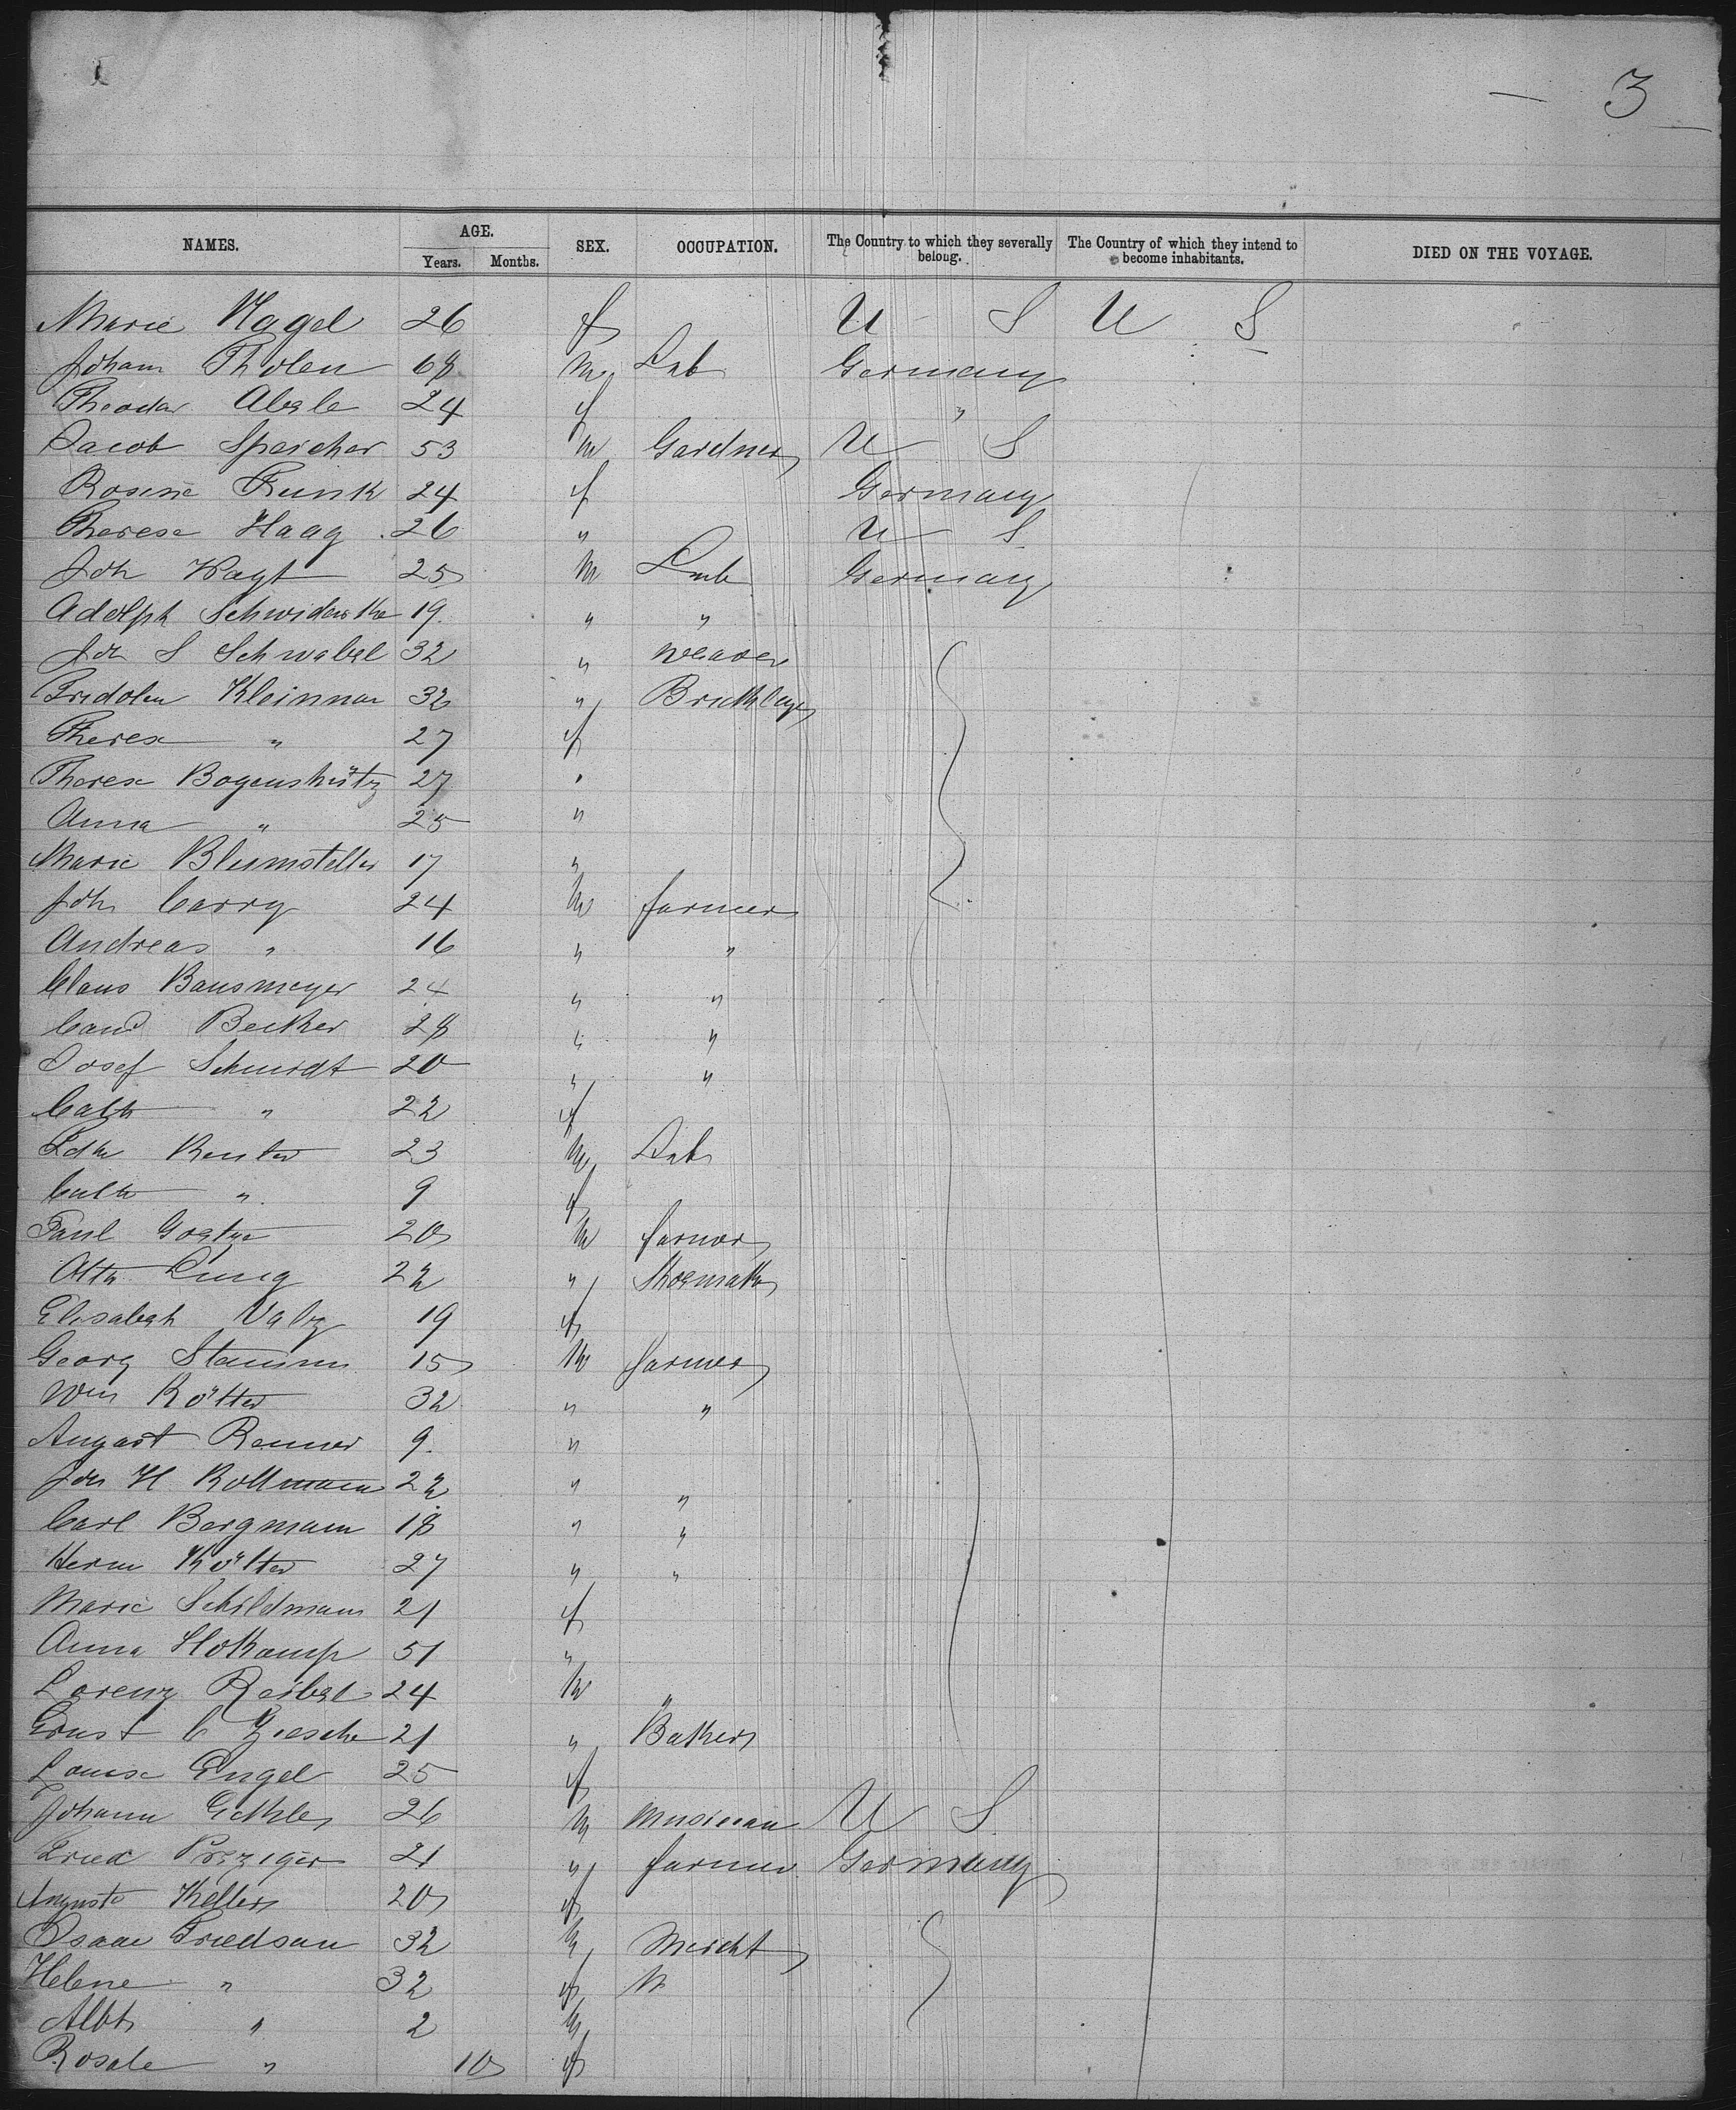 3
NAMES. AGE. Years. Months. SEX. OCCUPATION. The Country to which they severally belong. The Country of which they intend to become inhabitants. DIED ON THE VOYAGE.
Marie Nagel 26 f U S U S
Johann Tholen 68 m Lab Germany
Theodor Abele 24 f "
Jacob Speicher 53 m Gardner U S
Rosine Runk 24 f Germany
Therese Haag 26 " U S
Joh Wagt 25 m Lab Germany
Adolph 19 " "
Joh S Schwabel 32 " weaver
Fridolin 32 " Bricklayer
Therese " 27 f
Therese Bogenshütz 27 "
Anna " 25 "
Marie Blumstetter 17 "
Joh Carry 24 m farmer
Andreas " 16 " "
Claus Bausmeyer 24 " "
Becker 28 " "
Josef Schmidt 20 " "
Cath " 22 f
Reuter 23 m Lab
Cath " 9 f
Paul 20 m farmer
Otto Lung 22 " Shoemaker
Elisabeth 19 f
Georg Stamm 15 m farmer
Wm Kötter 32 " "
August Renner 9 "
Joh H Rollmann 22 " "
Carl Bergmann 18 " "
Herm Kötter 27 " "
Marie Schildmann 21 f
Anna Hokamp 51 "
Lorenz Reibel 24 m "
Ernst C Ziesche 21 " Baker
Louise Engel 25 f
Johann 26 m musician U S
21 " farmer Germany
Auguste Keller 20 f
Isaac Friedsam 32 m Mercht
Helene " 32 f W
Albt " 2 m
Rosale " 10 f